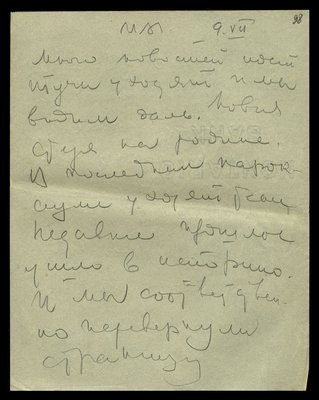 9.VII 98
много новостей идет
тучи уходят и мы
видим даль. Новая
на родине.
В последнем парок-
сизме уходят
недавнее прошлое
ушло в историю.
И мы соответствен-
но перевернули
страницу